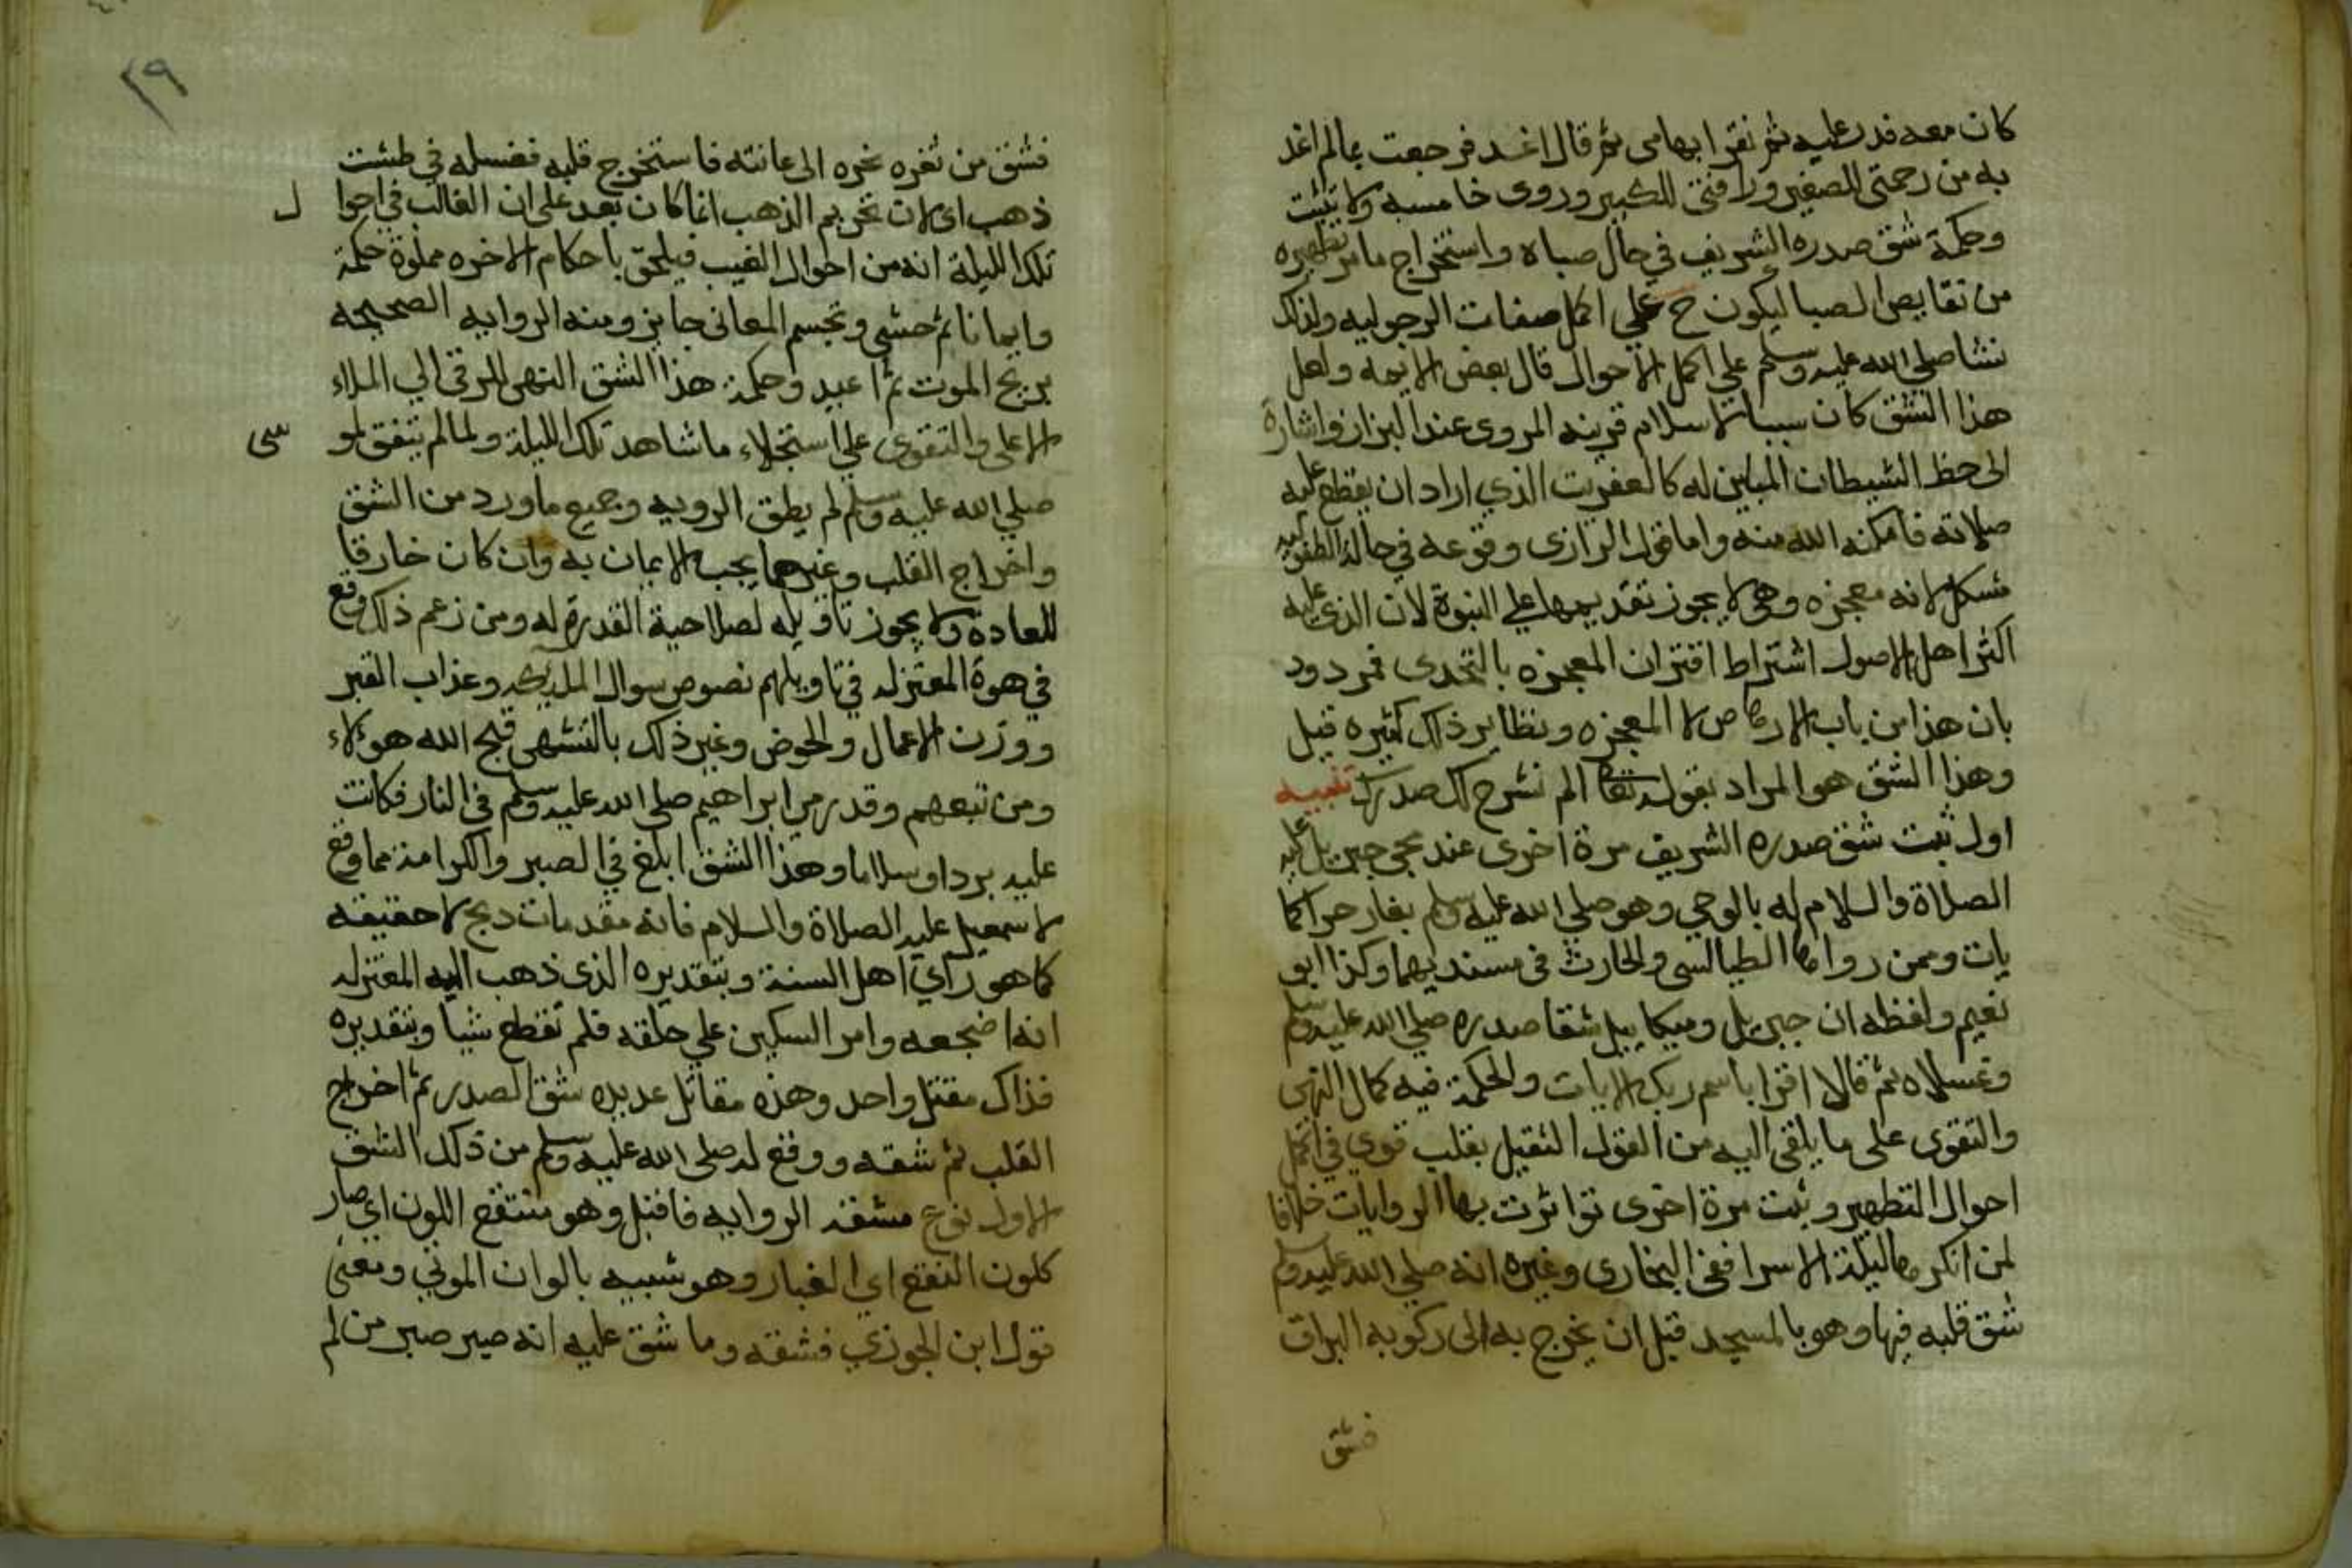 كان معه فدر عليه ثم نقر ابهامى ثم قال اغد فرجعت بمالم اغد
به من رحمتى للصغير ورافتى للكبير وروى خامسه ولا يثبت
وحكمة شق صدره الشريف في حال صباه واستخراج مامر تطهيره
من نقايص الصبا ليكون ح علي اكمل صفات الرجوليه ولذلك
نشا صلى الله عليه وسلم علي اكمل الاحوال قال بعض الايمه ولعل
هذا الشق كان سببا لاسلام قرينه المروى عند البزار واشارة
الى حظ الشيطان المباين له كالعفريت الذي اراد ان يقطع عليه
صلاته فامكنه الله منه واما قول الرازى وقوعه في حالة الطفوليه
مشكل لانه معجزه وهى لا يجوز تقديمها علي النبوة لان الذي عليه
اكثر اهل الاصول اشتراط اقتران المعجزه بالتحدى فمردود
بان هذا من باب الارهاص لا المعجزه ونظاير ذلك كثيره قيل
وهذا الشق هو المراد بقوله تعالى الم نشرح لك صدرك تنبيه
اول ثبت شق صدره الشريف مرة اخرى عند مجى جبريل عليه
الصلاة والسلام له بالوحي وهو صلي الله عليه وسلم بغار حرا كما
يات وممن رواها الطيالسى والحارث فى مسنديهما وكذا ابو
نعيم ولفظه ان جبريل وميكاييل شقا صدره صلي الله عليه وسلم
وغسلاه ثم قالا اقرا باسم ربك الايات والحكمة فيه كمال التهى
والتقوى على ما يلقى اليه من القول الثقيل بقلب قوي في اكمل
احوال التطهير وثبت مرة اخرى تواترت بها الروايات خلافا
لمن انكرها ليلة الاسرا ففى البخارى وغيره انه صلي الله عليه وسلم
شق قلبه فيها وهو بالمسجد قبل ان يخرج به الى ركوبه البراق
فشق
٢٩
فشق من ثغره نحره الى عانته فاستخرج قلبه فغسله في طشت
ذهب اى لان تحريم الذهب انما كان بعد على ان الغالب في احوال
تلك الليلة انه من احوال الغيب فيلحق باحكام الاخره مملوة حكمة
وايمانا ثم حشى وتجسم المعانى جايز ومنه الروايه الصحيحه
بذبح الموت ثم اعيد وحكمة هذا الشق التهى للرقى الي الملاء
الاعلى والتقوى علي استجلاء ما شاهد تلك الليلة ولما لم يتفق لموسى
صلي الله عليه وسلم لم يطق الرويه وجميع ما ورد من الشق
واخراج القلب وغيرهما يجب الايمان به وان كان خارقا
للعادة ولا يجوز تاويله لصلاحية القدرة له ومن زعم ذلك وقع
في هوة المعتزله في تاويلهم نصوص سوال الملكين وعذاب القبر
ووزن الاعمال والحوض وغير ذلك بالتشهى قبح الله هولاء
ومن تبعهم وقد رمي ابراهيم صلى الله عليه وسلم فى النار فكانت
عليه بردا وسلاما وهذا الشق ابلغ في الصبر والكرامة مما وقع
لاسمعيل عليه الصلاة والسلام فانه مقدمات دبح لا حقيقه
كما هو راي اهل السنة وبتقديره الذى ذهب اليه المعتزله
انه اضجعه وامر السكين علي حلقه فلم تقطع شيا وبتقديره
فذاك مقتل واحد وهذه مقاتل عديده شق الصدر ثم اخراج
القلب ثم شقه ووقع له صلى الله عليه وسلم من ذلك الشق
الاول نوع مشقه الروايه فاقبل وهو منتقع اللون اي صار
كلون النقع اي الغبار وهو شبيه بالوان الموتي ومعنى
قول ابن الجوزي فشقه وما شق عليه انه صبر صبر من لم